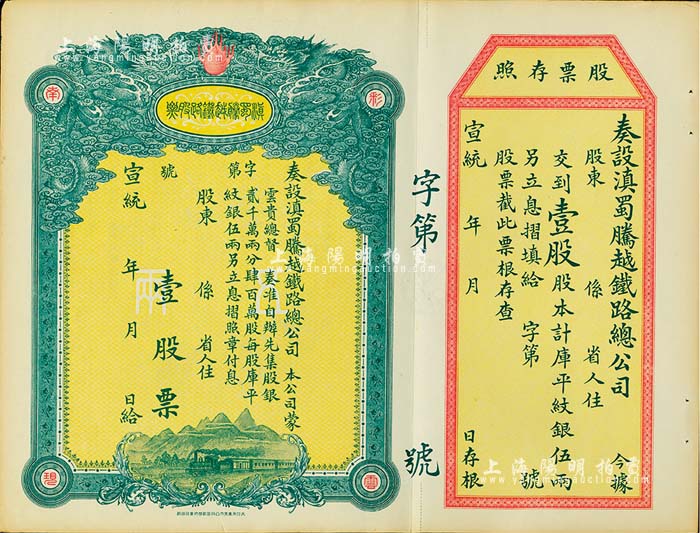 股票存照
奏設滇蜀騰越鐵路總公司 今據
股東 係 省人住
交到壹股股本計庫平紋銀伍兩
另立息摺填給 字第 號
股票截此票根存查
宣統 年 月 日存根
字第 號
滇蜀騰越鐵路股票
奏設滇蜀騰越鐵路總公司 本公司蒙
雲貴總督 奏准自辦先集股銀
貳千萬兩分肆百萬股每股庫平
紋銀伍兩另立息摺照章付息
字第 號
股東 係 省人住
壹股票
宣統 年 月 日給
伍兩
上海陽明拍賣
www.yangmingauction.com
上海陽明拍賣
www.yangmingauction.com
上海陽明拍賣
www.yangmingauction.com